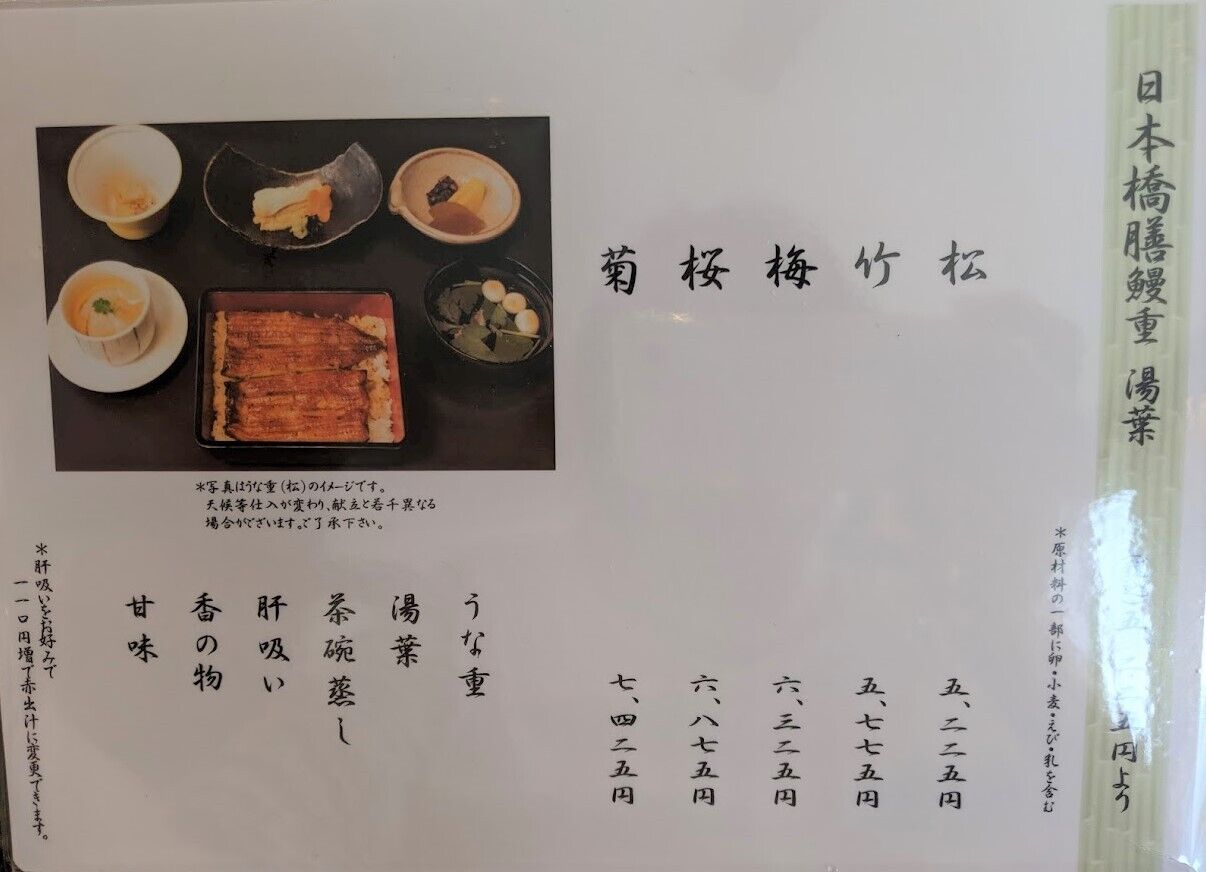 日本橋膳鰻重 湯葉
五円より
＊原材料の一部に卵・小麦・えび・乳を含む
松 五、二二五円
竹 五、七七五円
梅 六、三二五円
桜 六、八七五円
菊 七、四二五円
＊写真はうな重(松)のイメージです。
天候等仕入が変わり、献立と若干異なる
場合がございます。ご了承下さい。
うな重
湯葉
茶碗蒸し
肝吸い
香の物
甘味
＊肝吸いをお好みで
一一〇円増で赤出汁に変更できます。